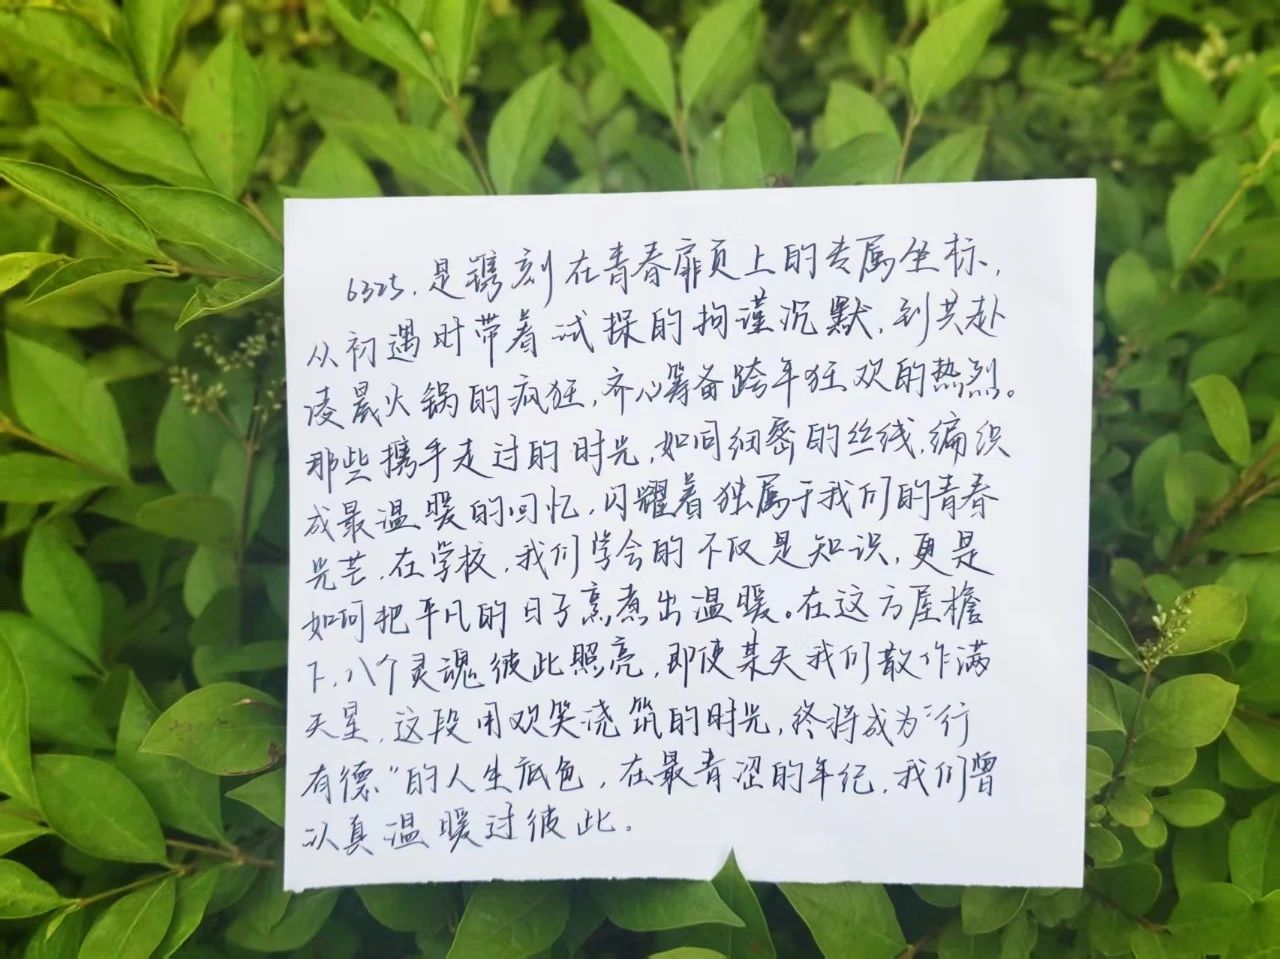 6325，是镌刻在青春扉页上的专属坐标，
从初遇时带着试探的拘谨沉默，到共赴
凌晨火锅的疯狂，齐心筹备跨年狂欢的热烈。
那些携手走过的时光，如同细密的丝线，编织
成最温暖的回忆，闪耀着独属于我们的青春
光芒，在学校，我们学会的不仅是知识，更是
如何把平凡的日子烹煮出温暖。在这方屋檐
下，八个灵魂彼此照亮，即使某天我们散作满
天星，这段用欢笑浇筑的时光，终将成为“行
有德”的人生底色，在最青涩的年纪，我们曾
认真温暖过彼此。